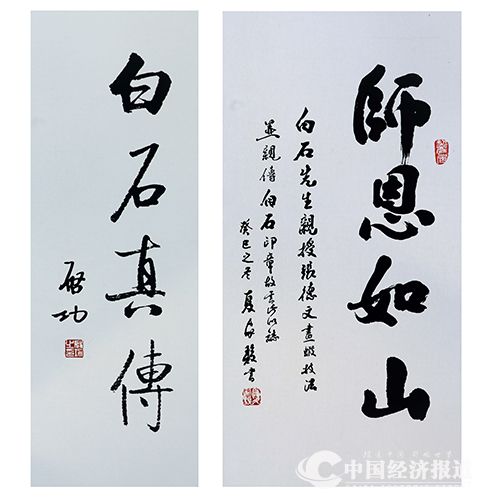 白石真傳
啟功
師恩如山
白石先生親授張德文畫蝦技法
並親傳白石印章故書此以誌
癸巳之冬
中国经济报道